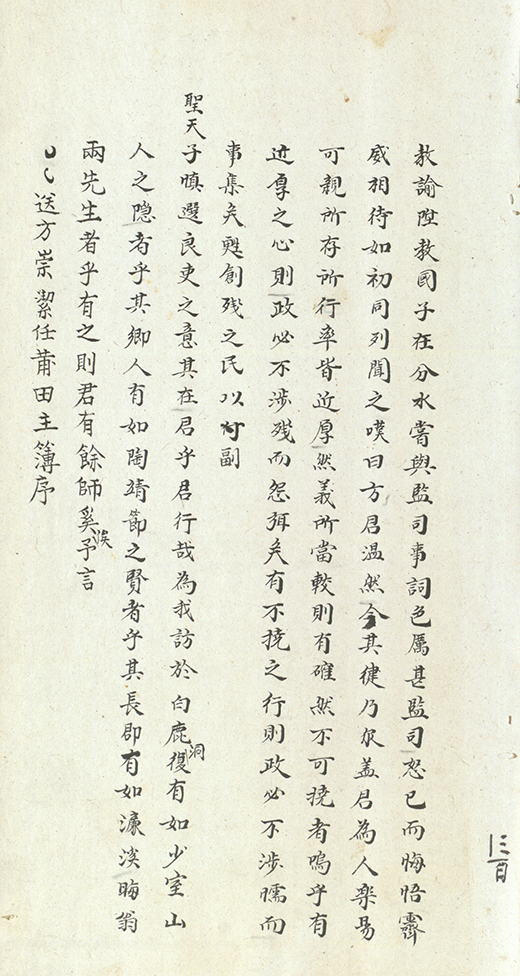 教諭陞教國子在分水嘗與監司事詞色厲甚監司怒已而悔悟霽
威相待如初同列聞之嘆曰方君温然今其徤乃尔盖君為人楽易
可親所存所行率皆近厚然義所當較則有確然不可撓者嗚乎有
近厚之心則政必不涉殘而怨弭矣有不撓之行則政必不涉懦而
事集矣甦創残之民以副
聖天子慎選良吏之意其在君乎君行哉為我訪於白鹿洞復有如少室山
人之隐者乎其鄉人有如陶靖節之賢者乎其長郡有如濂溪晦翁
兩先生者乎有之則君有餘師奚俟予言
送方崇潔任莆田主簿序